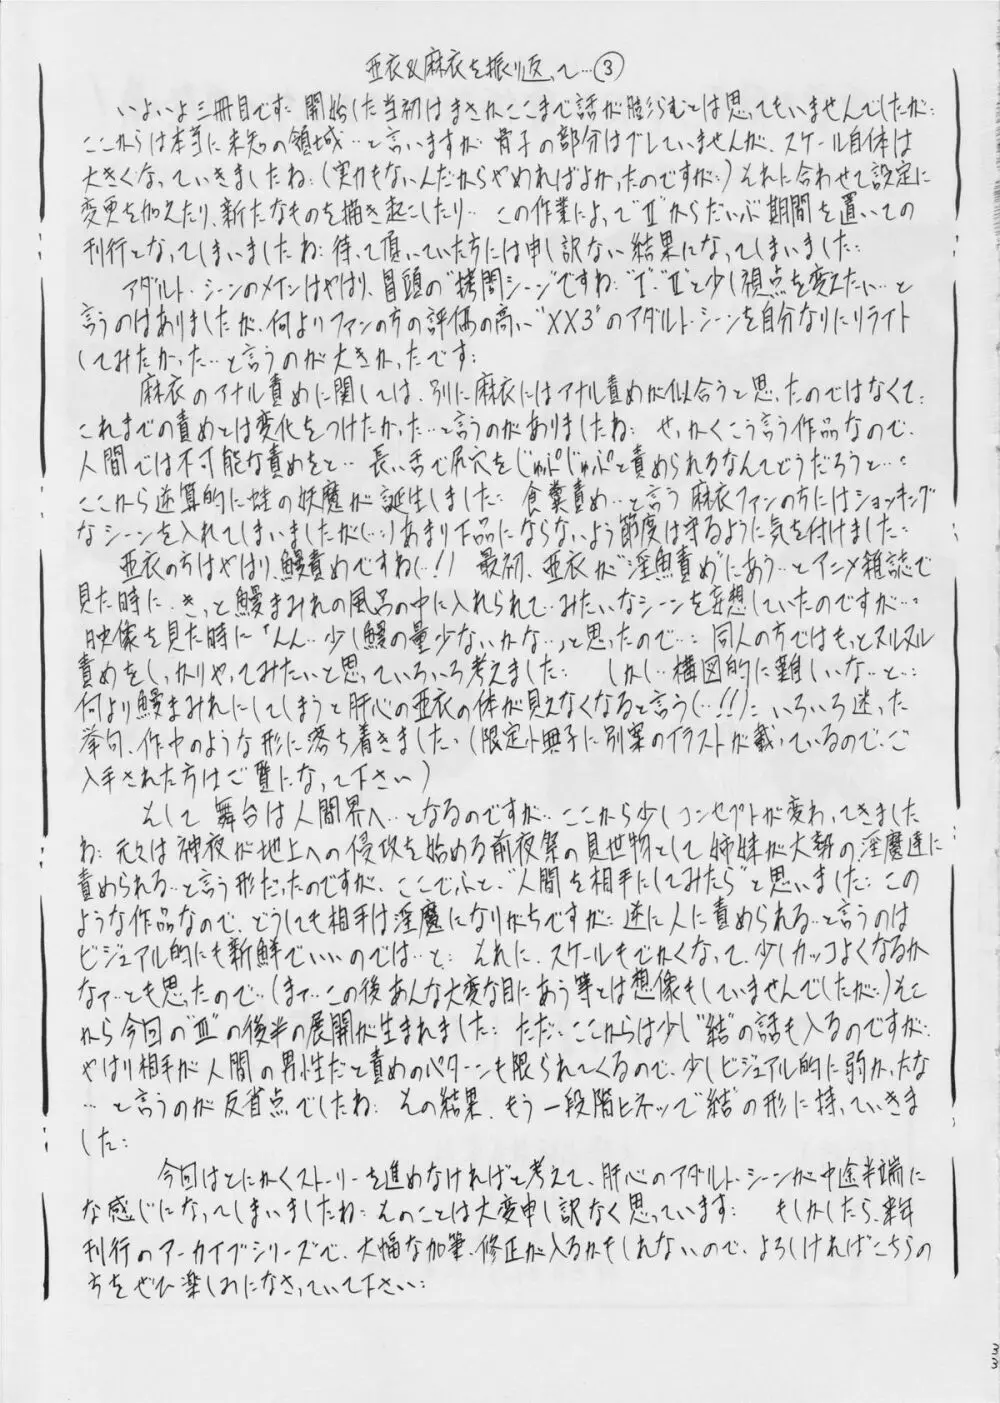 亜衣&麻衣を振り返って…③
いよいよ三冊目です: 開始した当初はまさかここまで話が膨らむとは思ってもいませんでしたが:
ここからは本当に未知の領域…と言いますが 骨子の部分はブレていませんが、スケール自体は
大きくなっていきましたね:(実力もないんだからやめればよかったのですが:)それに合わせて設定に
変更を加えたり、新たなものを描き起こしたり… この作業によって"Ⅱ"からだいぶ期間を置いての
刊行となってしまいましたね: 待って頂いていた方には申し訳ない結果になってしまいました:
アダルト・シーンのメインはやはり、冒頭の"拷問シーン"ですね: "Ⅰ"・"Ⅱ"と少し視点を変えたい…と
言うのはありましたが、何よりファンの方の評価の高い"XX3"のアダルト・シーンを自分なりにリライト
してみたかった…と言うのが大きかったです:
麻衣のアナル責めに関しては、別に麻衣にはアナル責めが似合うと思ったのではなくて:
これまでの責めとは変化をつけたかった…と言うのがありましたね: せっかくこう言う作品なので、
人間では不可能な責めをと… 長い舌で尻穴をじゅぷじゅぷと責められるなんてどうだろうと…:
ここから逆算的に蛙の妖魔が誕生しました: 食糞責め…と言う麻衣ファンの方にはショッキング
なシーンを入れてしまいましたが(…:)あまり下品にならないよう節度は守るように気を付けました:
亜衣の方はやはり、鰻責めですね(…!!) 最初、亜衣が"淫魚責め"にあう…とアニメ雑誌で
見た時に、きっと鰻まみれの風呂の中に入れられて…みたいなシーンを妄想していたのですが…:
映像を見た時に「んん…少し鰻の量少ないかな…」と思ったので…: 同人の方ではもっとヌルヌル
責めをしっかりやってみたいと思っていろいろ考えました: しかし…構図的に難しいな…と…:
何より鰻まみれにしてしまうと肝心の亜衣の体が見えなくなると言う(…!!): いろいろ迷った
挙句、作中のような形に落ち着きました、(限定小冊子に別案のイラストが載っているので、ご
入手された方はご覧になって下さい)
そして 舞台は人間界へ…となるのですが… ここから少しコンセプトが変わってきました
ね: 元々は神夜が地上への侵攻を始める前夜祭の見世物として姉妹が大勢の淫魔達に
責められる…と言う形だったのですが、ここでふと、"人間を相手にしてみたら"と思いました: この
ような作品なので、どうしても相手は淫魔になりがちですが: 逆に人に責められる…と言うのは
ビジュアル的にも新鮮でいいのでは…と: それに、スケールもでかくなって、少しカッコよくなるか
なァ…とも思ったので…(まァ…この後あんな大変な目にあう等とは想像もしていませんでしたが:)そこ
から今回の"Ⅲ"の後半の展開が生まれました: ただ: ここからは少し"結"の話も入るのですが:
やはり相手が人間の男性だと責めのパターンも限られてくるので、少しビジュアル的に弱かったな
…と言うのが反省点でしたね: その結果、もう一段階ヒネって"結"の形に持っていきま
した:
今回はとにかくストーリーを進めなければと考えて、肝心のアダルト・シーンが中途半端に
な感じになってしまいましたね: そのことは大変申し訳なく思っています: もしかしたら、来年
刊行のアーカイブシリーズで、大幅な加筆・修正が入るかもしれないので、よろしければこちらの
方をぜひ楽しみになさっていて下さい:
33